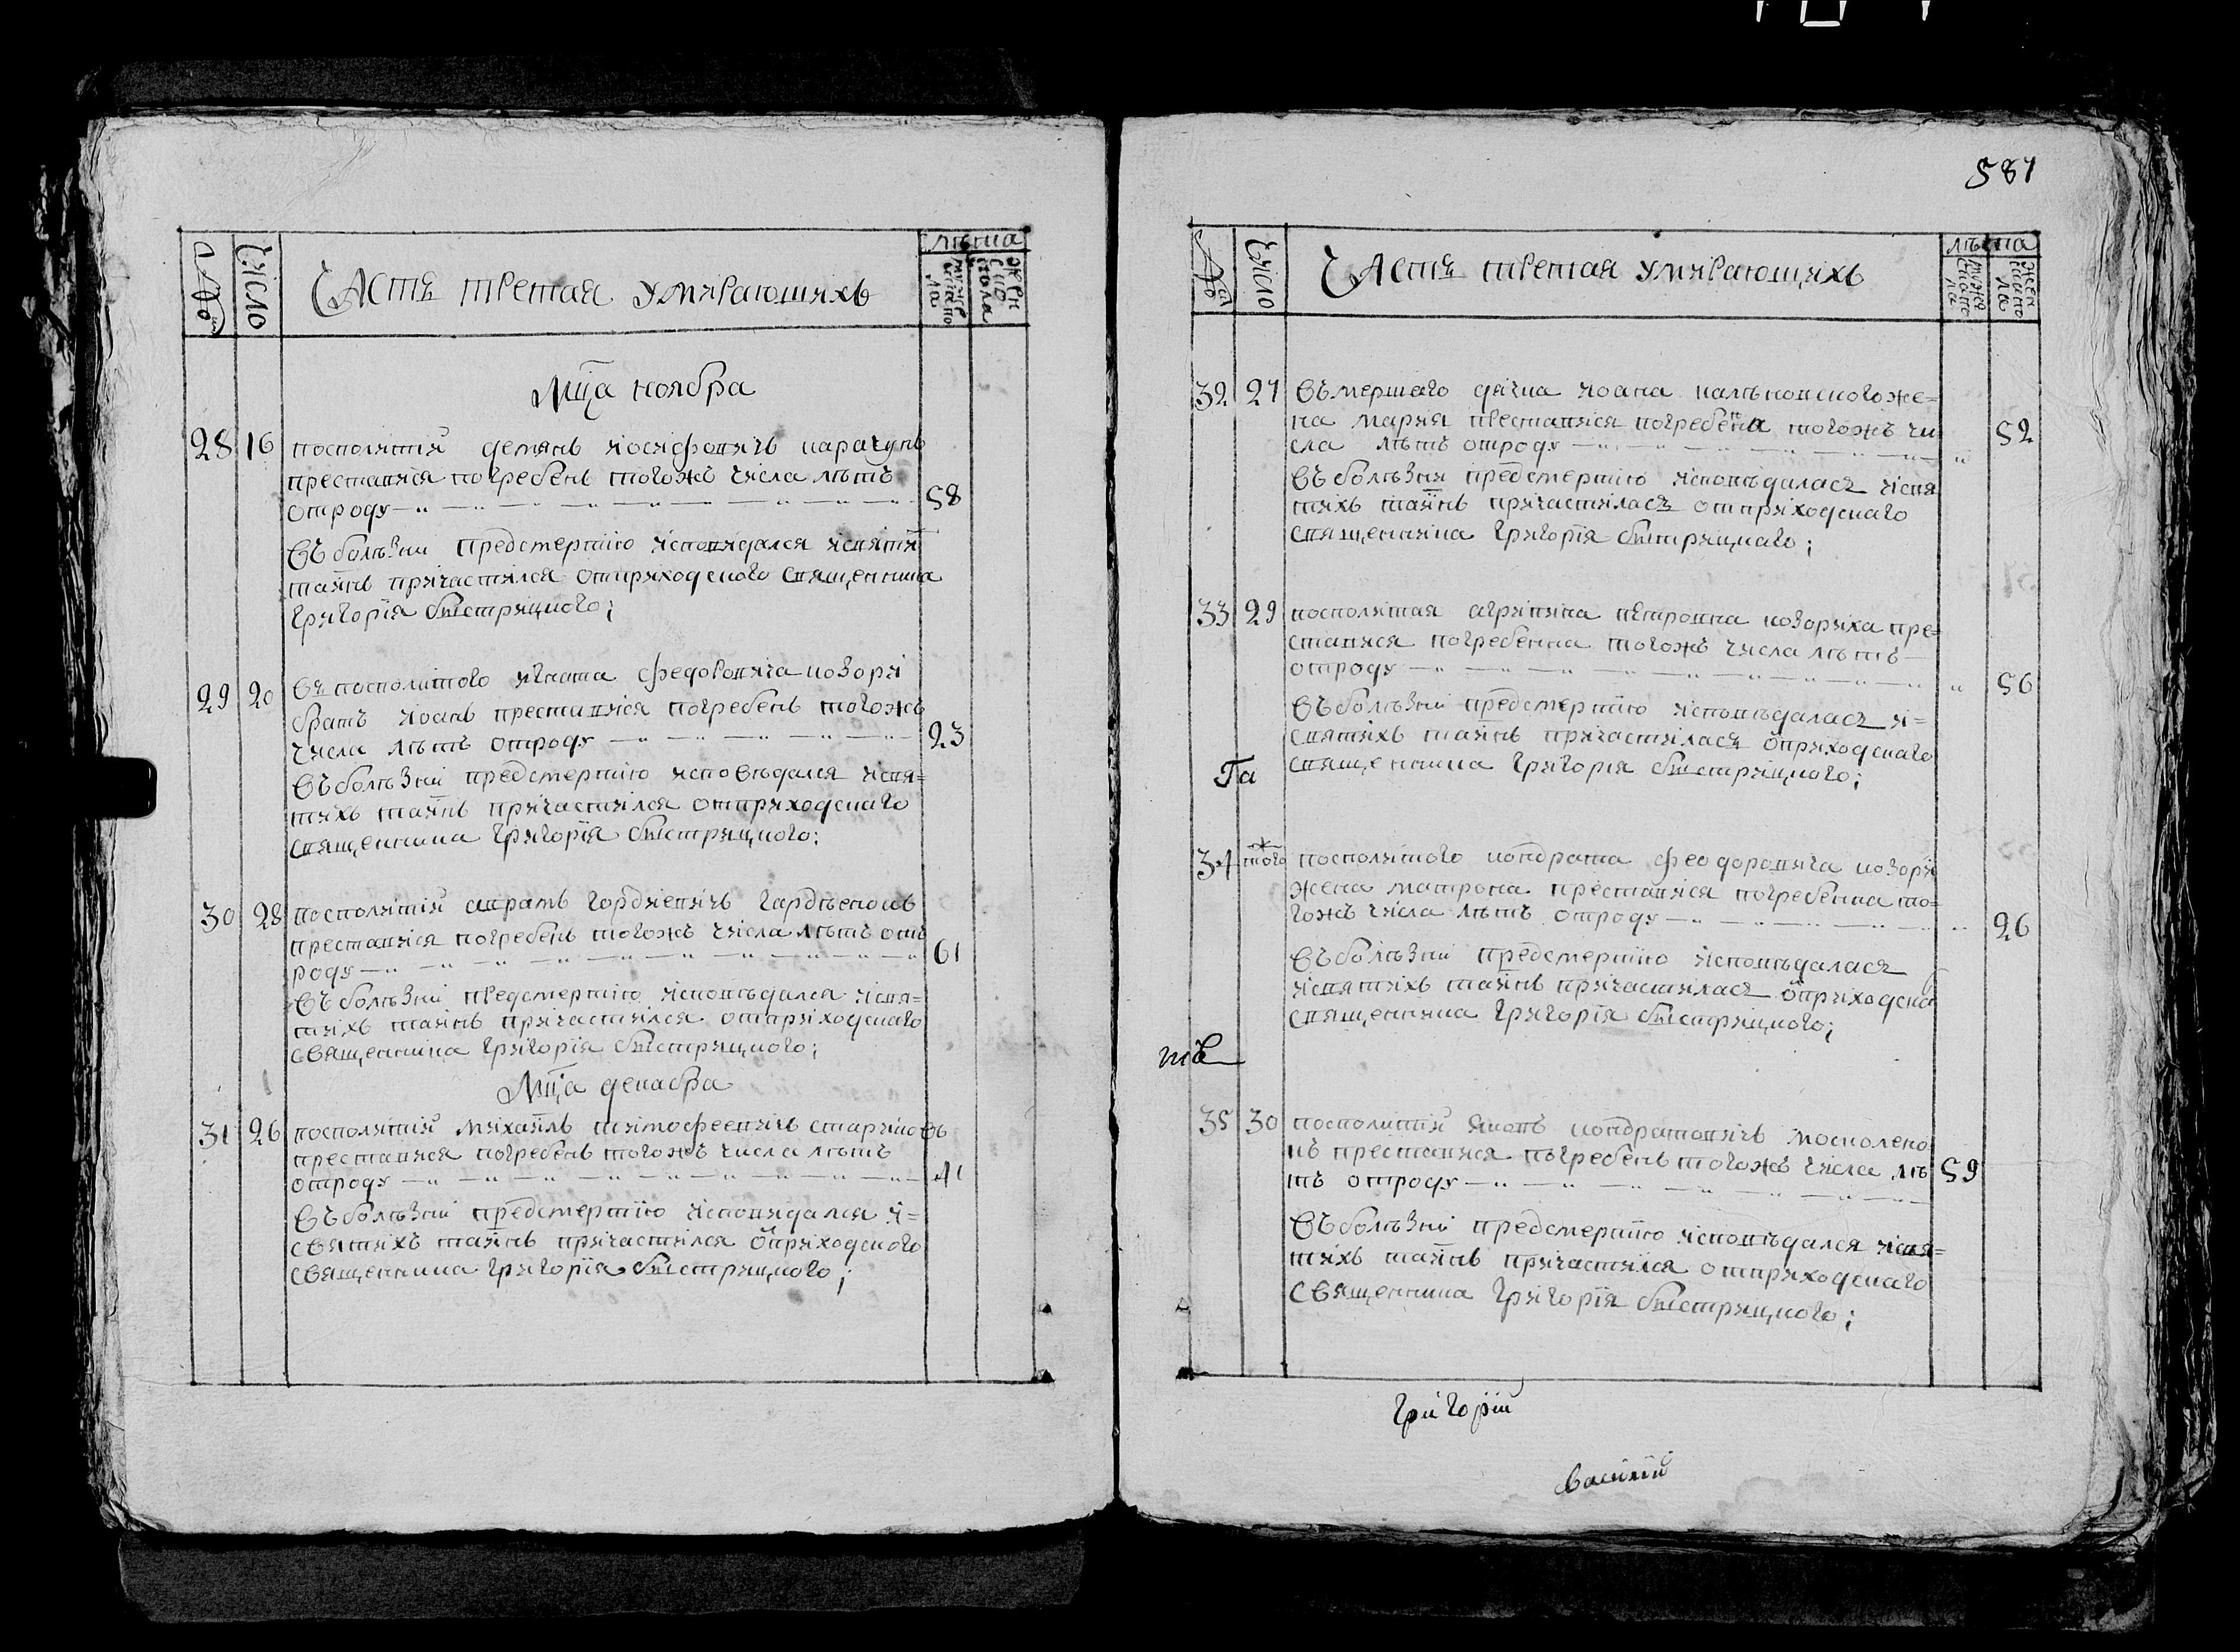 Число
Часть третая умирающихъ
лѣта
мужеска пола
женска пола
Мца ноября
28 16 посполитій демянъ иосифовичъ карачунъ
преставися погребенъ тогожъ числа лѣтъ
отроду 58
Въ болѣзни предсмертную исповидался исвятій
таинъ причастился отприходского священника
григорія быстрицкого;
29 20 Въ посполитого игната федоровича козорі
братъ иоанъ преставися погребенъ тогожъ
числа лѣтъ отроду 23
Въ болѣзни предсмертную исповѣдался исвя=
тихъ таинъ причастился отприходскаго
священника григорія быстрицкого:
30 28 посполитій гордіевичъ гардѣенокъ
преставися погребенъ тогожъ числа лѣтъ от
роду 61
Въ болѣзни предсмертную исповѣдался исвя=
тихъ таинъ причастился отприходскаго
священника григорія быстрицкого;
Мца декабра
31 26 посполитій михаилъ тимофеевичъ старик овъ
преставися погребенъ тогожъ числа лѣтъ
отроду 41
Въ болѣзни предсмертную исповидался и=
святихъ таинъ причастился ѿприходского
священника григорія быстрицкого;
587
Число
Часть третая умирающихъ
лѣта
мужеска пола
женска пола
32 27 Въ мершаго дячка иоана жe=
на мария преставися погребенна тогожъ чи
сла лѣтъ отроду 52
Въ болѣзни предсмертную исповѣдалась исвя
тихъ таинъ причастилась отприходскаго
священника григорія быстрицкаго;
33 29 посполитая агрипина петровна козориха пре=
ставися погребенна тогожъ числа лѣтъ
отроду 56
Въ болѣзни предсмертную исповѣдалась и=
святихъ таинъ причастилась ѿприходскаго
священника григорія быстрицкого;
Га
34 того посполитого кондрата феодоровича козори
жена матрона преставися погребенна то=
гожъ числа лѣтъ отроду 26
Въ болѣзни предсмертную исповѣдалась
исвятихъ таинъ причастилась ѿприходска
священника григорія быстрицкого;
35 30 посполитій яковъ кондратовичъ москолено
къ преставися погребенъ тогожъ числа лѣ
тъ отроду 59
Въ болѣзни предсмертную исповѣдался исвя=
тихъ таинъ причастился отприходскаго
священника григорія быстрицкого;
григорій
василий